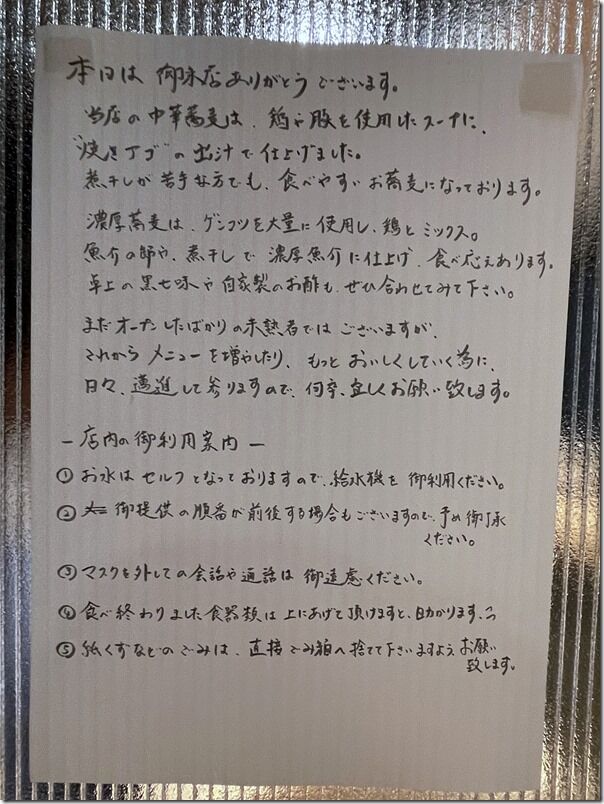 本日は 御来店ありがとうございます。
当店の中華蕎麦は、鶏や豚を使用したスープに、
"焼きアゴ"の出汁で仕上げました。
煮干しが苦手な方でも、食べやすいお蕎麦になっております。
濃厚蕎麦は、ゲンコツを大量に使用し、鶏とミックス。
魚介の節や、煮干しで濃厚魚介に仕上げ、食べ応えあります。
卓上の黒七味や自家製のお酢も、ぜひ合わせてみて下さい。
まだオープンしたばかりの未熟者ではございますが、
これからメニューを増やしたり、もっとおいしくしていく為に、
日々、邁進して参りますので、何卒、宜しくお願い致します。
ー店内の御利用案内ー
①お水はセルフとなっておりますので、給水機を御利用ください。
② 御提供の順番が前後する場合もございますので、予め御了承
ください。
③マスクを外しての会話や通話は御遠慮ください。
④食べ終わりました食器類は上にあげて頂けますと、助かります、
⑤紙くずなどのごみは、直接ごみ箱へ捨てて下さいますようお願い
致します。